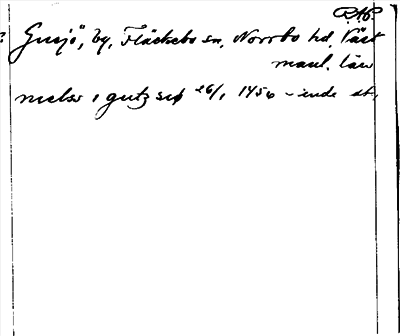 P.Ap.
Gusjö, by, Fläckebo sn, Norrbo hd, Väst
manl. län
nielss i gutz siø 26/1 1456 – inde st.